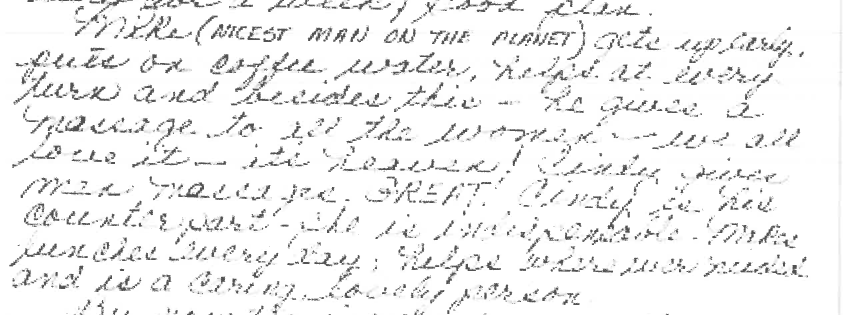 for a week, good plan.
Mike (NICEST MAN ON THE PLANET) gets up early,
puts on coffee water, helps at every
turn and besides this - he gives a
massage to all the women - we all
love it - its heaven! Cindy gives
men massage. GREAT! Cindy is his
counterpart - she is indispensible. Makes
lunches every day, helps wherever needed
and is a caring, lovely person